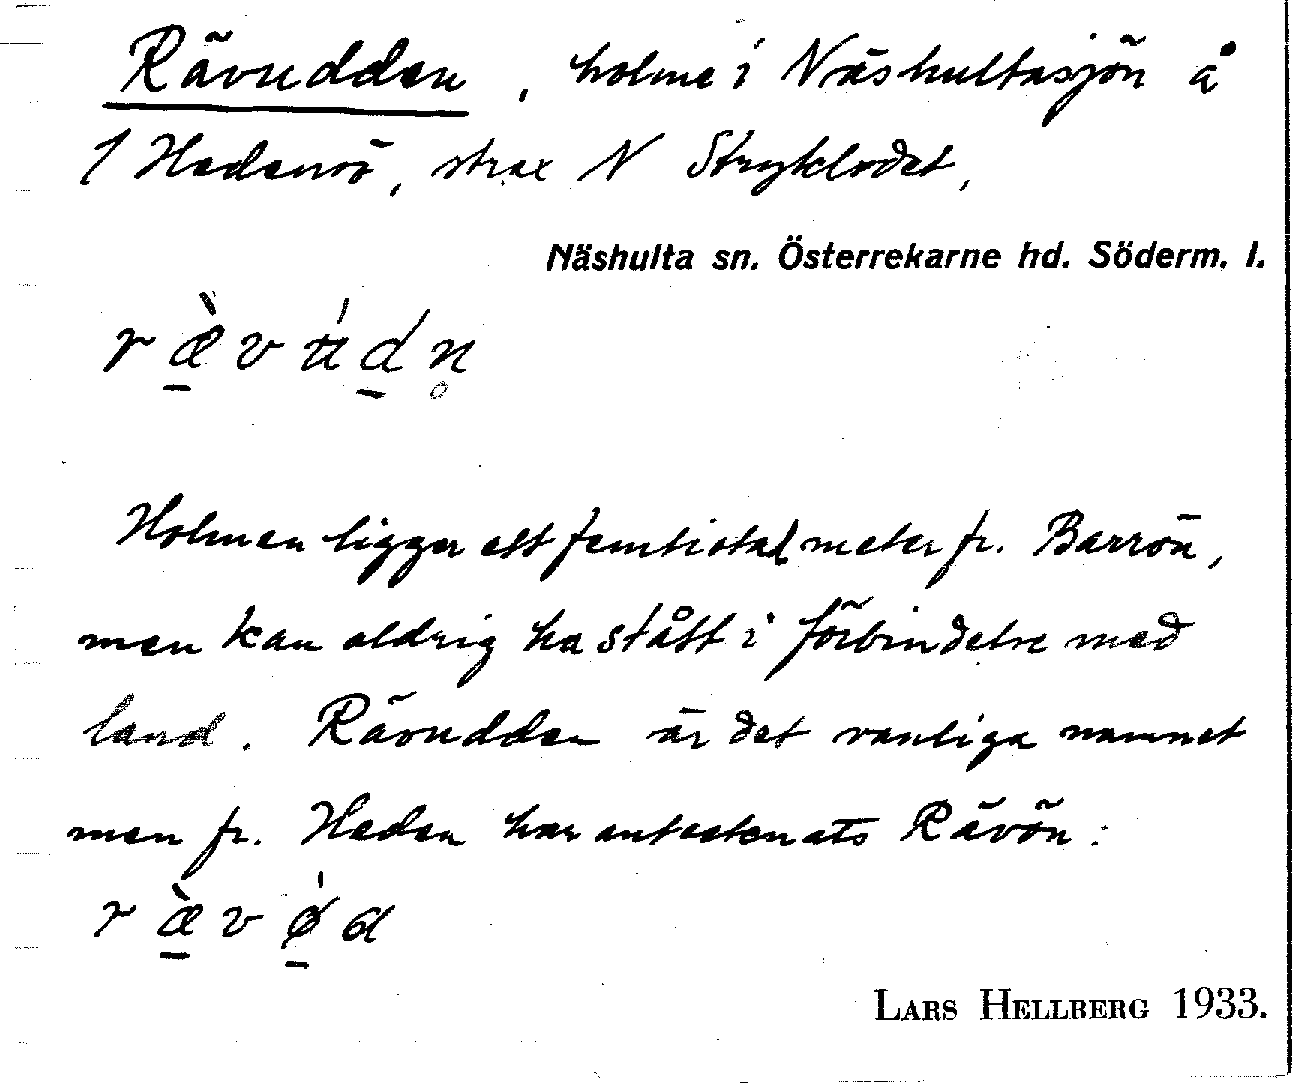 Rävudden, holme i Näshultasjön å
1 Hedensö, strax N Stryklodet,
Näshulta sn. Österrekarne hd. Söderm. l.
r æ̱̀ v ʉ́ ḏ n̥
Holmen ligger ett femtiotal meter fr. Barrön,
men kan aldrig ha stått i förbindelse med
land. Rävudden är det vanliga namnet
men fr. Heden har antecknats Rävön:
r æ̱̀ v ǿ̱ a
LARS HELLBERG 1933.